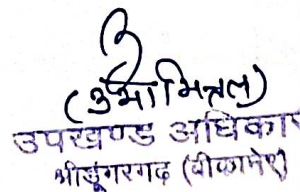 (उमा मित्तल)
उपखण्ड अधिका
श्रीडूंगरगढ़ (बीकानेर)